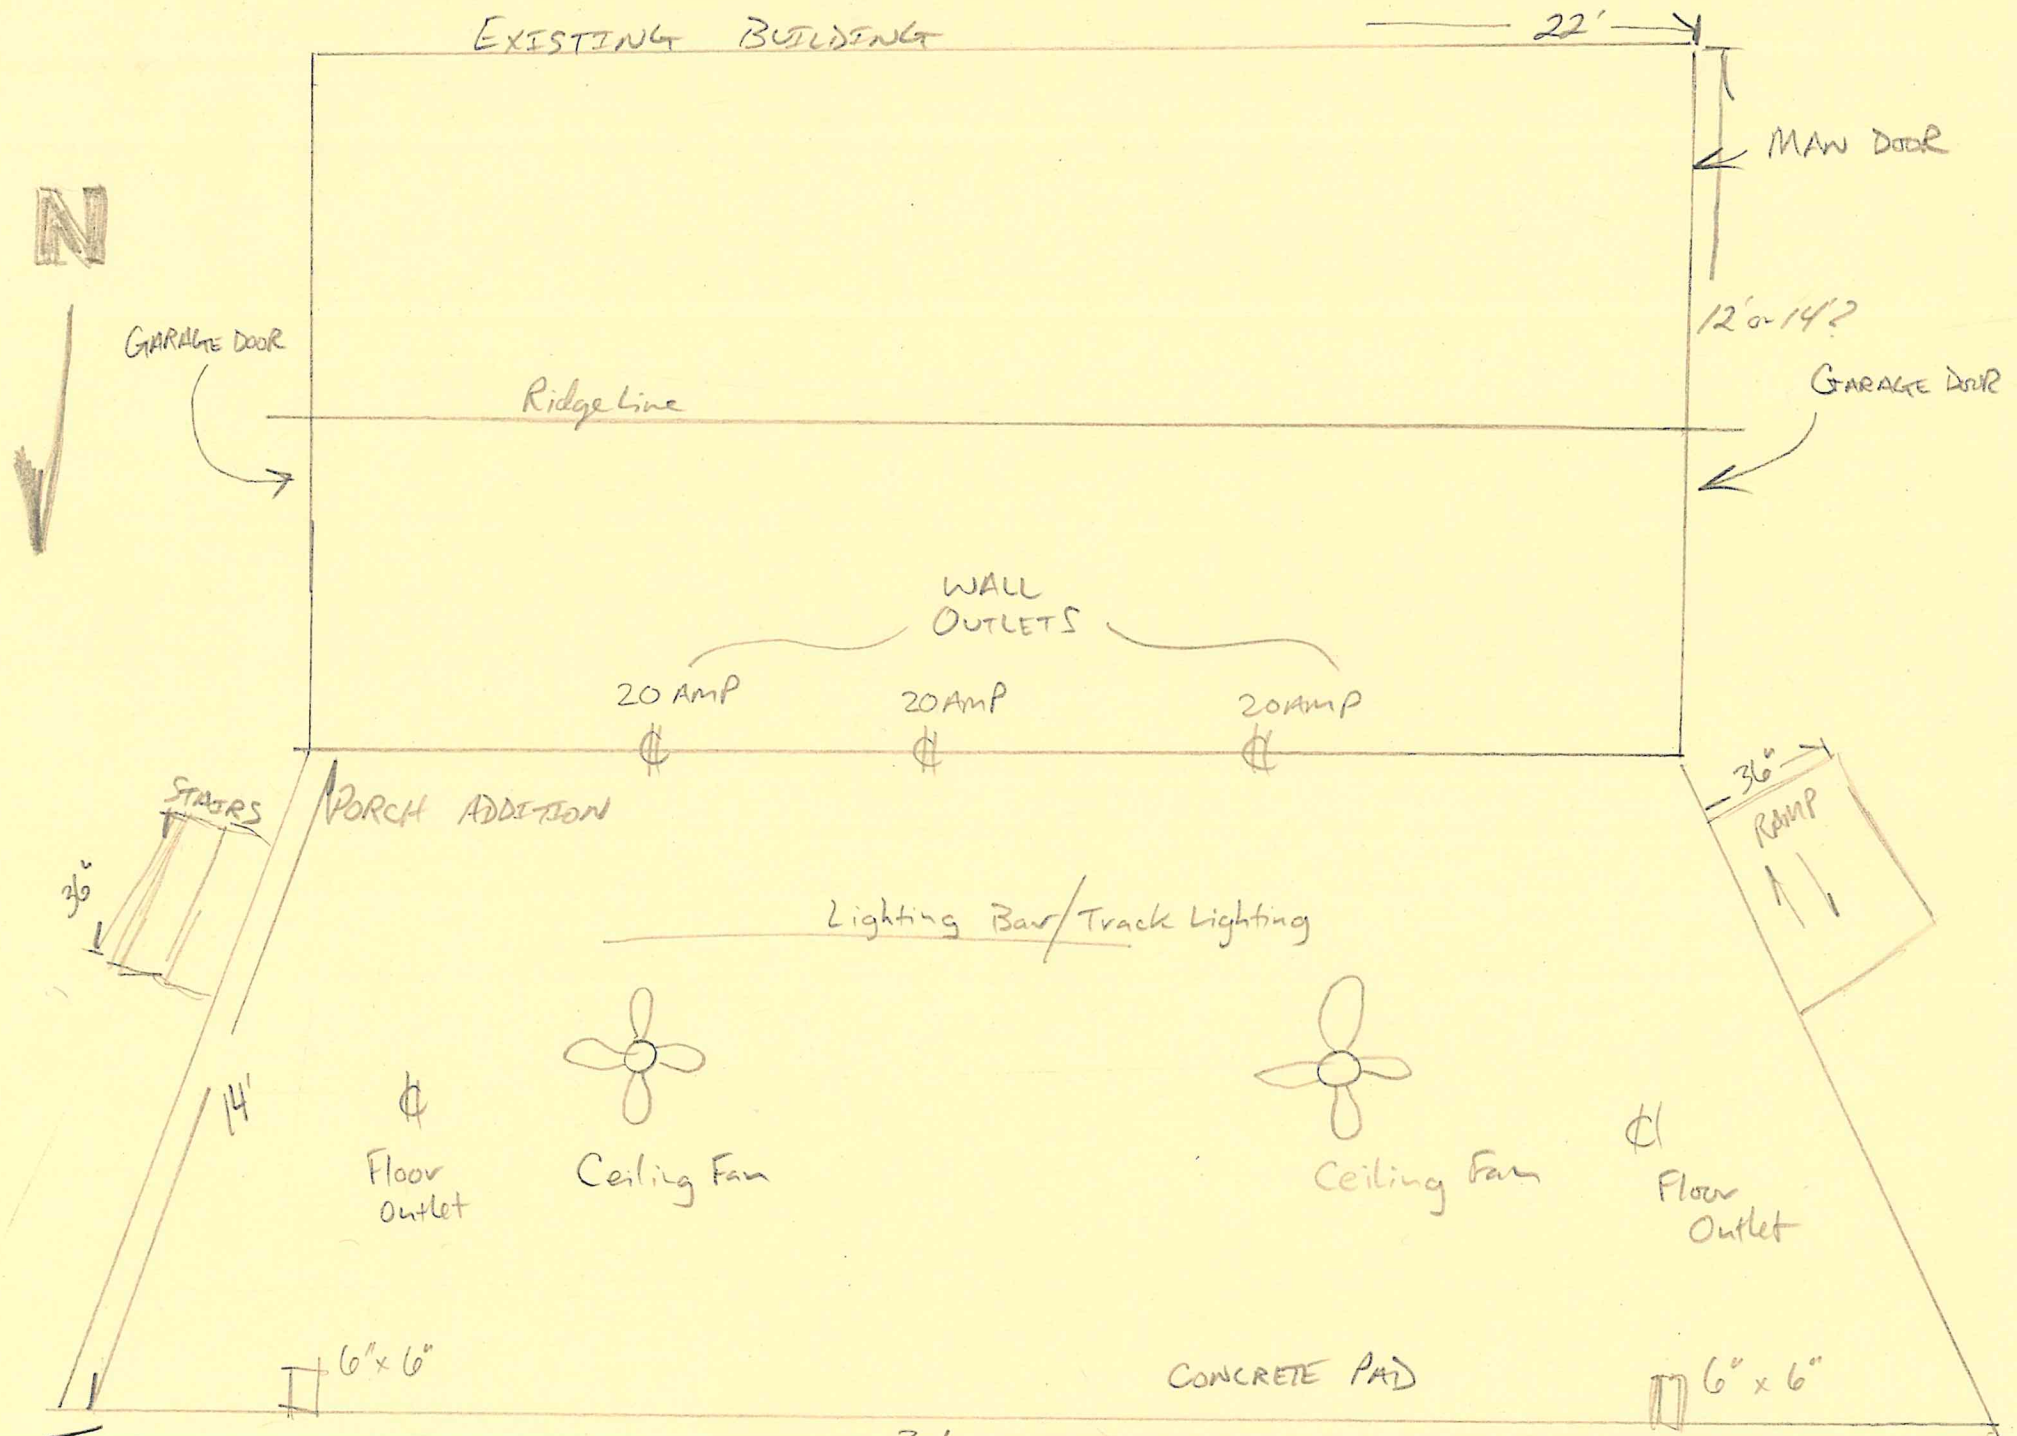 EXISTING BUILDING
22'
MAN DOOR
N
12' or 14'?
GARAGE DOOR
GARAGE DOOR
Ridge Line
WALL
OUTLETS
20 AMP
20 AMP
20 AMP
STAIRS
PORCH ADDITION
36"
RAMP
36"
Lighting Bar/Track Lighting
14'
Floor
Outlet
Ceiling Fan
Ceiling Fan
Floor
Outlet
6" x 6"
CONCRETE PAD
6" x 6"